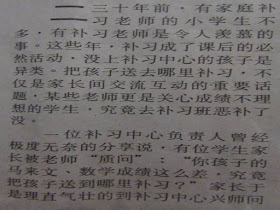 二三十年前，有家庭补
习老师的小学生不
多，有补习老师是令人羡慕的
事。这些年，补习成了课后的必
然活动，没上补习中心的孩子是
异类。把孩子送去哪里补习，不
仅是家长间交流互动的重要话
题，某些老师更是关心成绩不理
想的学生，究竟去补习班恶补了
没。
一位补习中心负责人曾经
极度无奈的分享说，有位学生家
长被老师“质问”：“你孩子的
马来文、数学成绩这么差，究竟
把孩子送到哪里补习？”家长于
是理直气壮的到补习中心兴师问